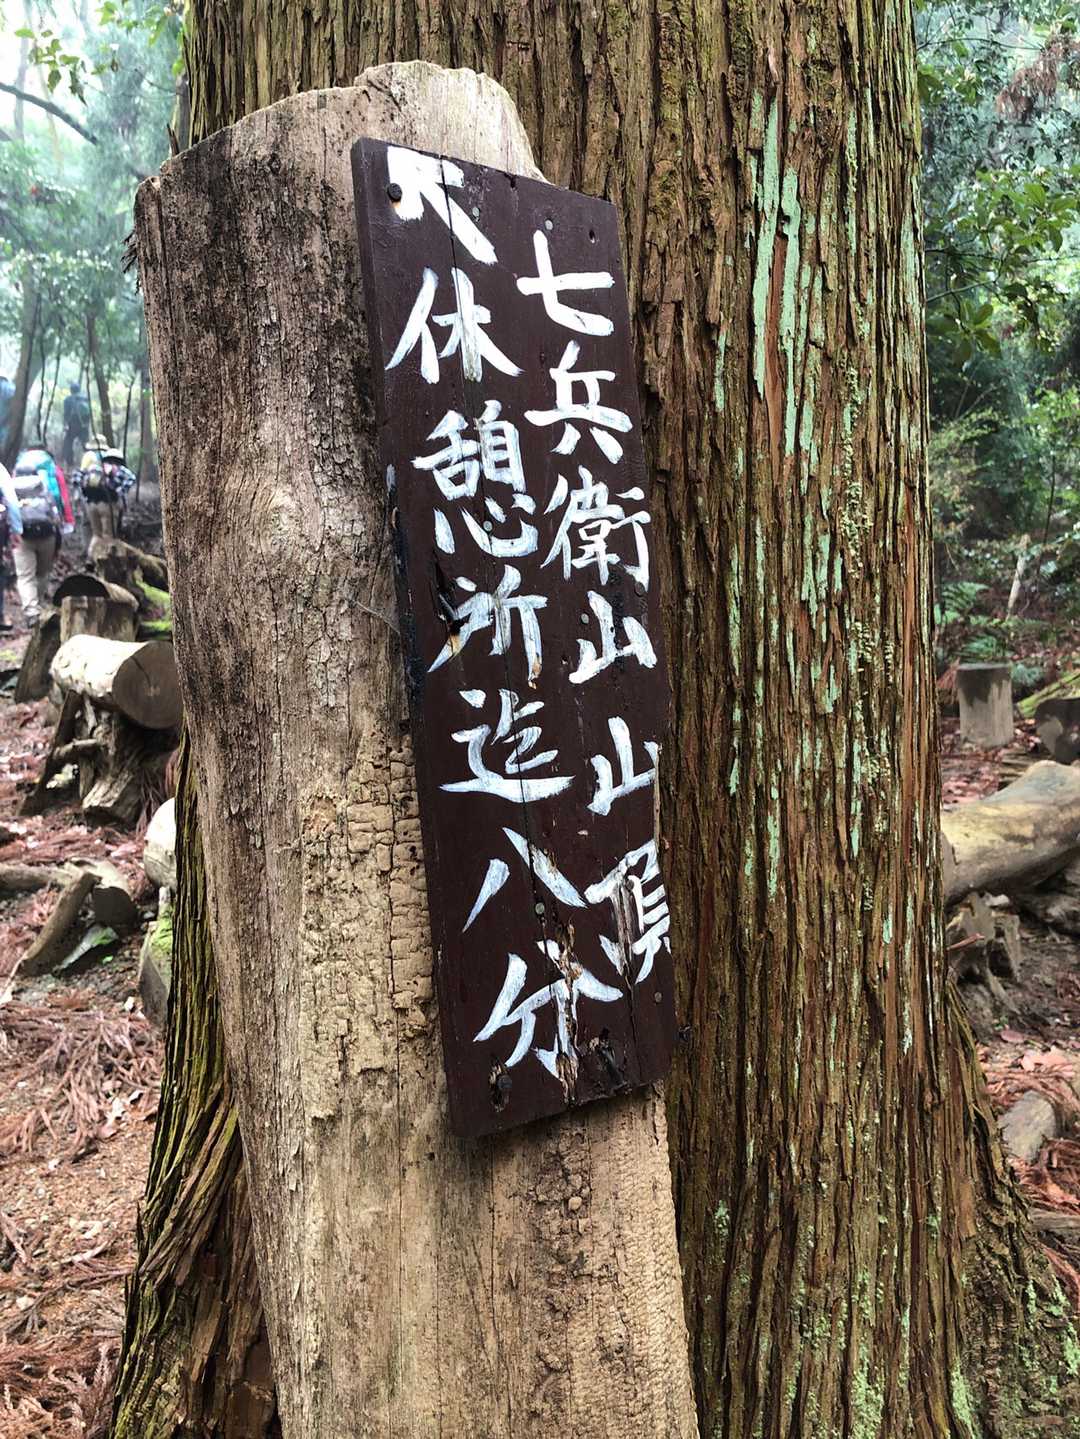 七兵衛山山頂
↖休憩所迄八分